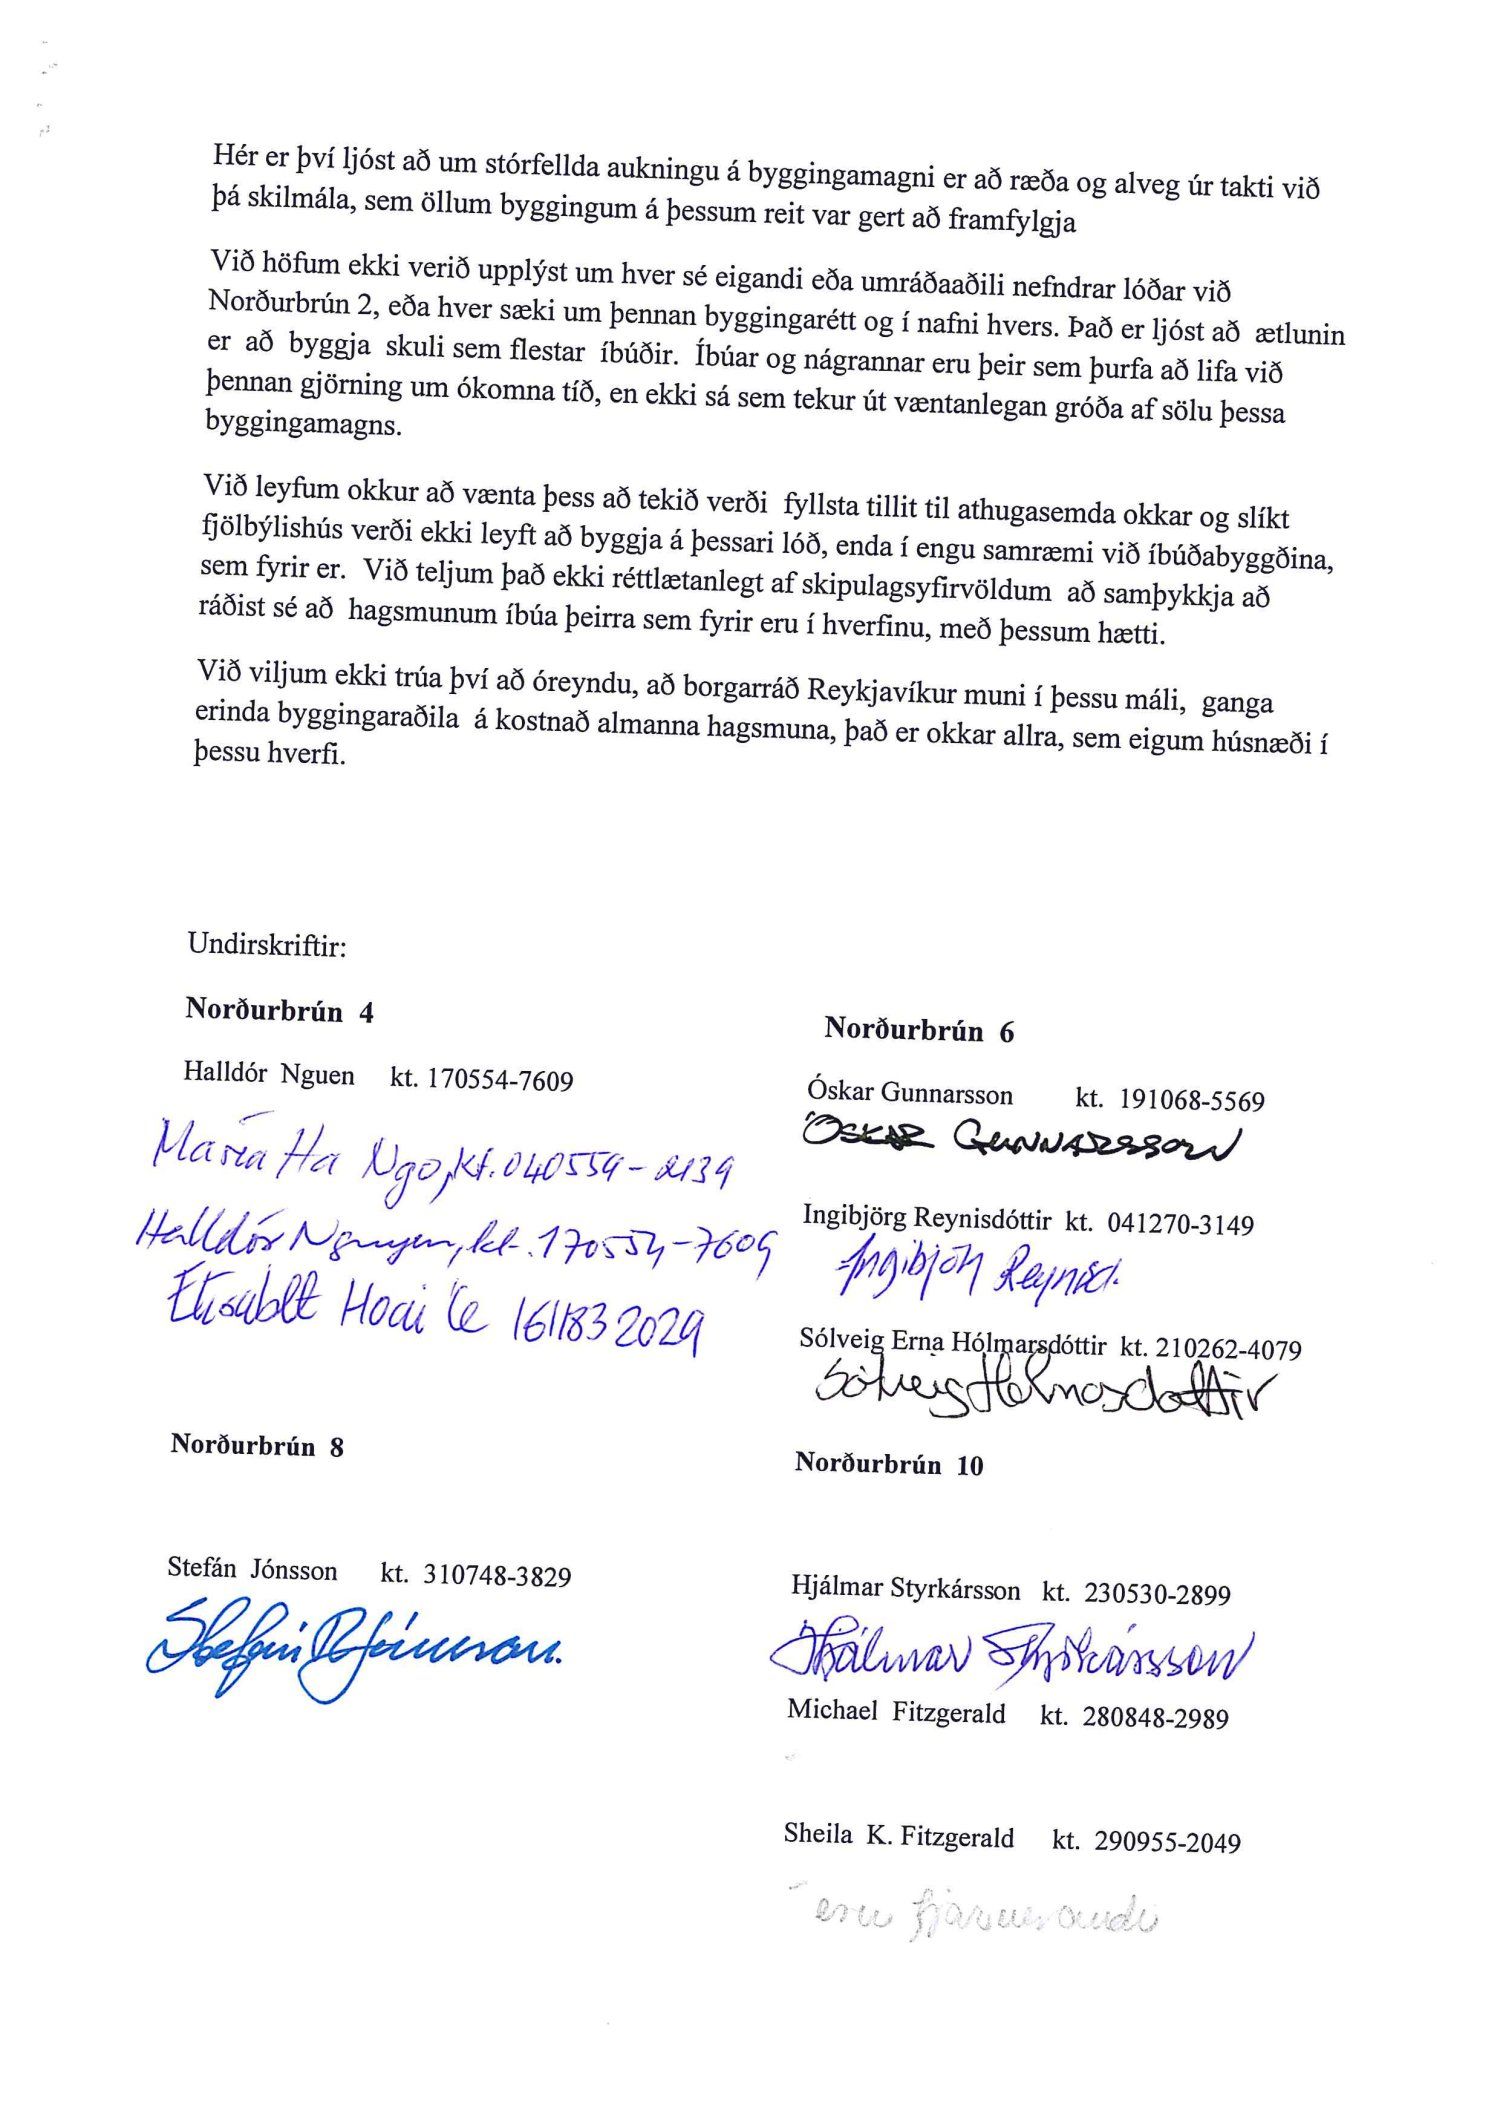 Hér er því ljóst að um stórfellda aukningu á byggingamagni er að ræða og alveg úr takti við
þá skilmála, sem öllum byggingum á þessum reit var gert að framfylgja
Við höfum ekki verið upplýst um hver sé eigandi eða umráðaaðili nefndrar lóðar við
Norðurbrún 2, eða hver sæki um þennan byggingarétt og í nafni hvers. Það er ljóst að ætlunin
er að byggja skuli sem flestar íbúðir. Íbúar og nágrannar eru þeir sem þurfa að lifa við
þennan gjörning um ókomna tíð, en ekki sá sem tekur út væntanlegan gróða af sölu þessa
byggingamagns.
Við leyfum okkur að vænta þess að tekið verði fyllsta tillit til athugasemda okkar og slíkt
fjölbýlishús verði ekki leyft að byggja á þessari lóð, enda í engu samræmi við íbúðabyggðina,
sem fyrir er. Við teljum það ekki réttlætanlegt af skipulagsyfirvöldum að samþykkja að
ráðist sé að hagsmunum íbúa þeirra sem fyrir eru í hverfinu, með þessum hætti.
Við viljum ekki trúa því að óreyndu, að borgarráð Reykjavíkur muni í þessu máli, ganga
erinda byggingaraðila á kostnað almanna hagsmuna, það er okkar allra, sem eigum húsnæði í
þessu hverfi.
Undirskriftir:
Norðurbrún 4
Halldór Nguen kt. 170554-7609
María Ha Ngo, kt. 040559-2139
Halldór Nguyen, kt. 170554-7609
Elísabet Hoai Le 161183 2029
Norðurbrún 6
Óskar Gunnarsson kt. 191068-5569
ÓSKAR GUNNARSSON
Ingibjörg Reynisdóttir kt. 041270-3149
Ingibjörg Reynisd.
Sólveig Erna Hólmarsdóttir kt. 210262-4079
Sólveig Hólmarsdóttir
Norðurbrún 8
Stefán Jónsson kt. 310748-3829
Stefán Jónsson.
Norðurbrún 10
Hjálmar Styrkársson kt. 230530-2899
Hjálmar Styrkársson
Michael Fitzgerald kt. 280848-2989
Sheila K. Fitzgerald kt. 290955-2049
eru fjarverandi